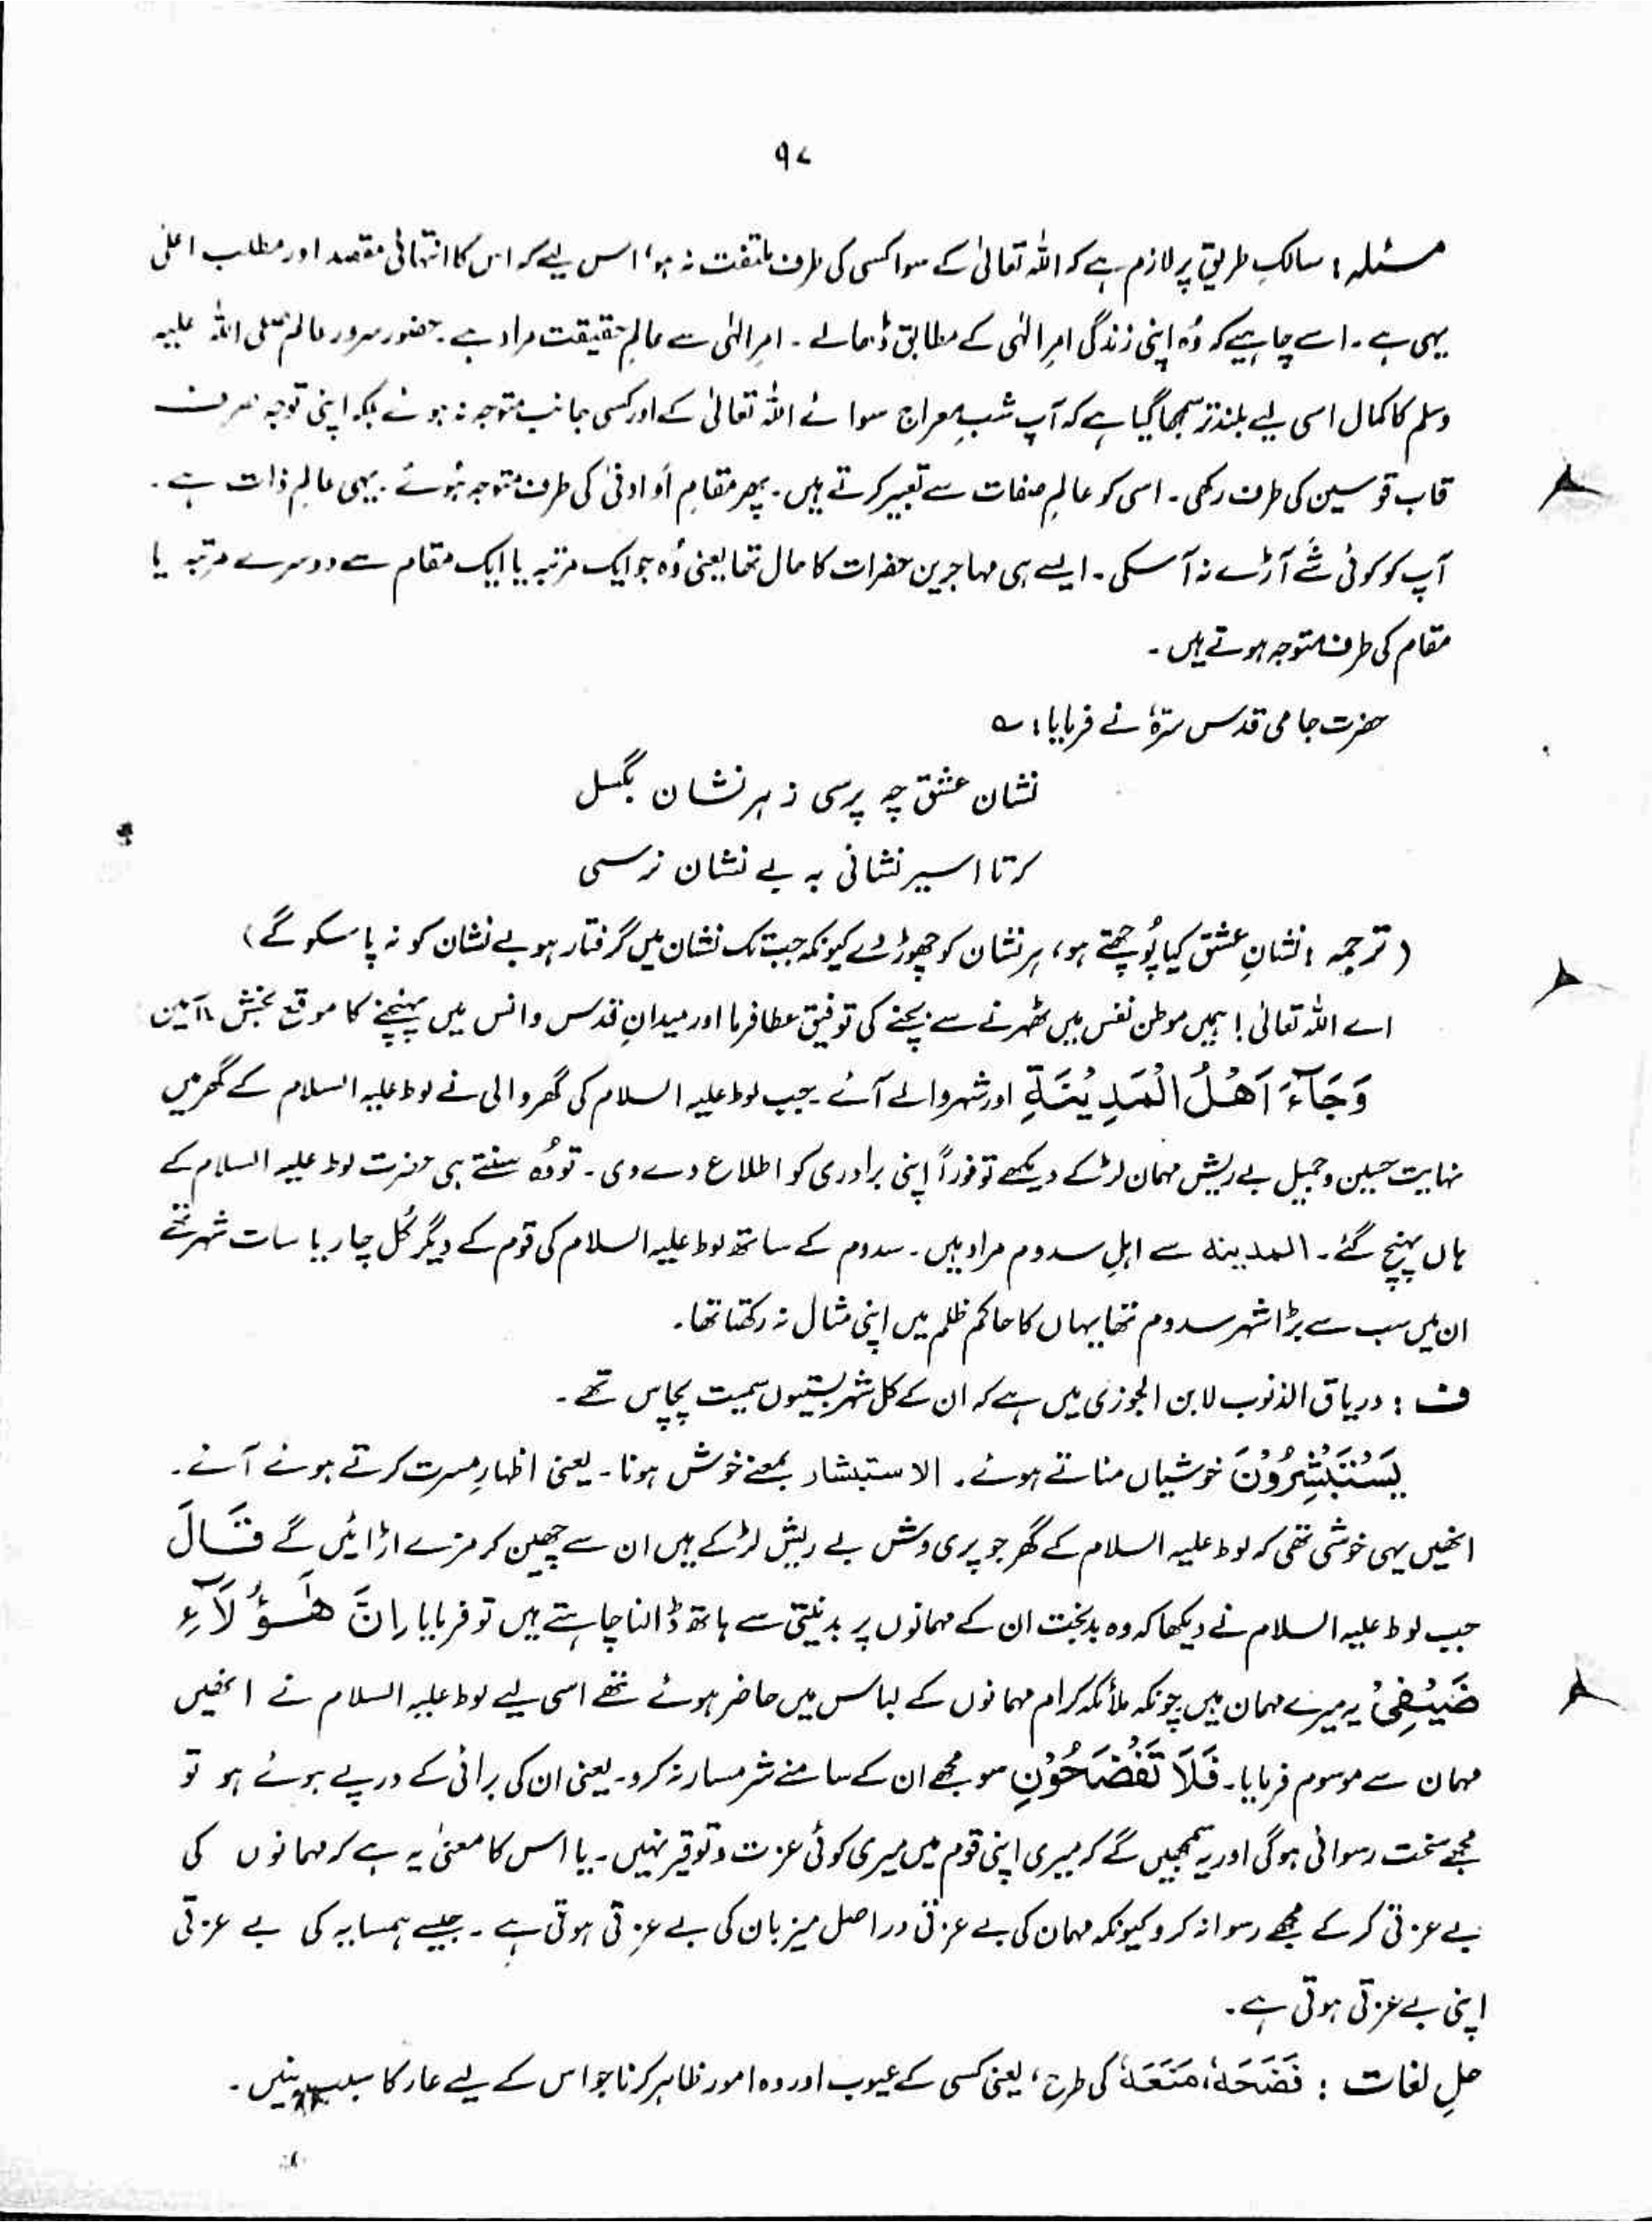 ۹۷
مسئلہ : سالکِ طریق پر لازم ہے کہ اللہ تعالیٰ کے سوا کسی کی طرف ملتفت نہ ہو، اس لیے کہ اس کا انتہائی مقصد اور مطلب اعلیٰ
یہی ہے۔ اسے چاہیے کہ وُہ اپنی زندگی امرِ الٰہی کے مطابق ڈھالے۔ امرِ الٰہی سے عالمِ حقیقت مراد ہے۔ حضور سرور عالم صلی اللہ علیہ
وسلم کا کمال اسی لیے بلند تر سمجھا گیا ہے کہ آپ شبِ معراج سوائے اللہ تعالیٰ کے اور کسی جانب متوجہ نہ ہوئے بلکہ اپنی توجہ صرف
قاب قوسین کی طرف رکھی۔ اسی کو عالمِ صفات سے تعبیر کرتے ہیں۔ پھر مقامِ اَو ادنیٰ کی طرف متوجہ ہُوئے۔ یہی عالمِ ذات ہے۔
آپ کو کوئی شَے آڑے نہ آ سکی۔ ایسے ہی مہاجرین حضرات کا حال تھا یعنی وُہ جو ایک مرتبہ یا ایک مقام سے دوسرے مرتبہ یا
مقام کی طرف متوجہ ہوتے ہیں۔
حضرت جامی قدس سترہٗ نے فرمایا : ؎
نشان عشق چہ پرسی ز ہر نشان بگسل
کہ تا اسیر نشانی بہ بے نشان نرسی
(ترجمہ : نشانِ عشق کیا پُوچھتے ہو، ہر نشان کو چھوڑ دے کیونکہ جب تک نشان میں گرفتار ہو بے نشان کو نہ پا سکو گے)
اے اللہ تعالیٰ! ہمیں موطن نفس میں ٹھہرنے سے بچنے کی توفیق عطا فرما اور میدانِ قدس و انس میں پہنچنے کا موقع بخش۔ (آمین
وَجَآءَ اَهْلُ الْمَدِیْنَةِ اور شہر والے آئے۔ جب لوط علیہ السلام کی گھر والی نے لوط علیہ السلام کے گھر میں
نہایت حسین و جمیل بے ریش مہمان لڑکے دیکھے تو فوراً اپنی برادری کو اطلاع دے دی۔ تو وُہ سنتے ہی حضرت لوط علیہ السلام کے
ہاں پہنچ گئے۔ المدینہ سے اہلِ سدوم مراد ہیں۔ سدوم کے ساتھ لوط علیہ السلام کی قوم کے دیگر کُل چار یا سات شہر تھے
ان میں سب سے بڑا شہر سدوم تھا یہاں کا حاکم ظلم میں اپنی مثال نہ رکھتا تھا۔
ف : دریاق الذنوب لابن الجوزی میں ہے کہ ان کے کل شہر بستیوں سمیت پچاس تھے۔
یَسْتَبْشِرُوْنَ خوشیاں مناتے ہوئے۔ الاستبشار بمعنے خوش ہونا۔ یعنی اظہارِ مسرت کرتے ہوئے آئے۔
انھیں یہی خوشی تھی کہ لوط علیہ السلام کے گھر جو پری وش بے ریش لڑکے ہیں ان سے چھین کر مزے اڑائیں گے قَالَ
جب لوط علیہ السلام نے دیکھا کہ وہ بدبخت ان کے مہمانوں پر بدنیتی سے ہاتھ ڈالنا چاہتے ہیں تو فرمایا اِنَّ هٰٓؤُلَآءِ
ضَیْفِیْ یہ میرے مہمان ہیں چونکہ ملائکہ کرام مہمانوں کے لباس میں حاضر ہوئے تھے اسی لیے لوط علیہ السلام نے انھیں
مہمان سے موسوم فرمایا۔ فَلَا تَفْضَحُوْنِ سو مجھے ان کے سامنے شرمسار نہ کرو۔ یعنی ان کی برائی کے درپے ہوئے ہو تو
مجھے سخت رسوائی ہوگی اور یہ سمجھیں گے کہ میری اپنی قوم میں میری کوئی عزت و توقیر نہیں۔ یا اس کا معنیٰ یہ ہے کہ مہمانوں کی
بے عزتی کر کے مجھے رسوا نہ کرو کیونکہ مہمان کی بے عزتی دراصل میزبان کی بے عزتی ہوتی ہے۔ جیسے ہمسایہ کی بے عزتی
اپنی بے عزتی ہوتی ہے۔
حلِ لغات : فَضَحَهٗ، مَنَعَهٗ کی طرح، یعنی کسی کے عیوب اور وہ امور ظاہر کرنا جو اس کے لیے عار کا سبب بنیں۔